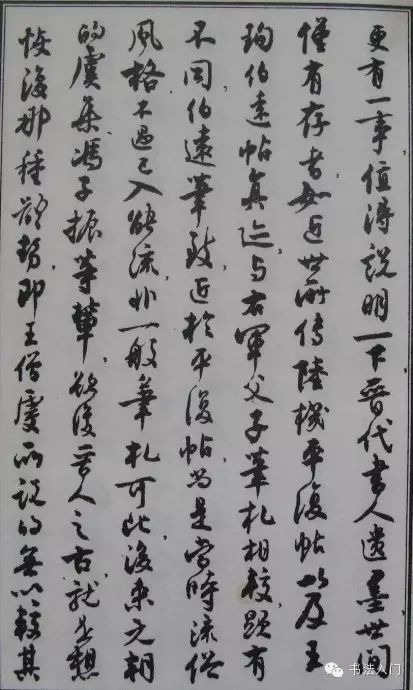 更有一事,值得說明一下,晉代書人遺墨世間
僅有存者,如近世所傳陸機平復帖以及王
珣伯遠帖真迹,与右軍父子筆札相較,顯有
不同,伯遠筆致近於平復帖,尚是當時流俗
風格,不過已入能流,非一般筆札可比,後來元朝
的虞集,馮子振等輩,欲復晉人之古,就是想
恢復那種體勢,即王僧虔所說的無以較其
书法入门